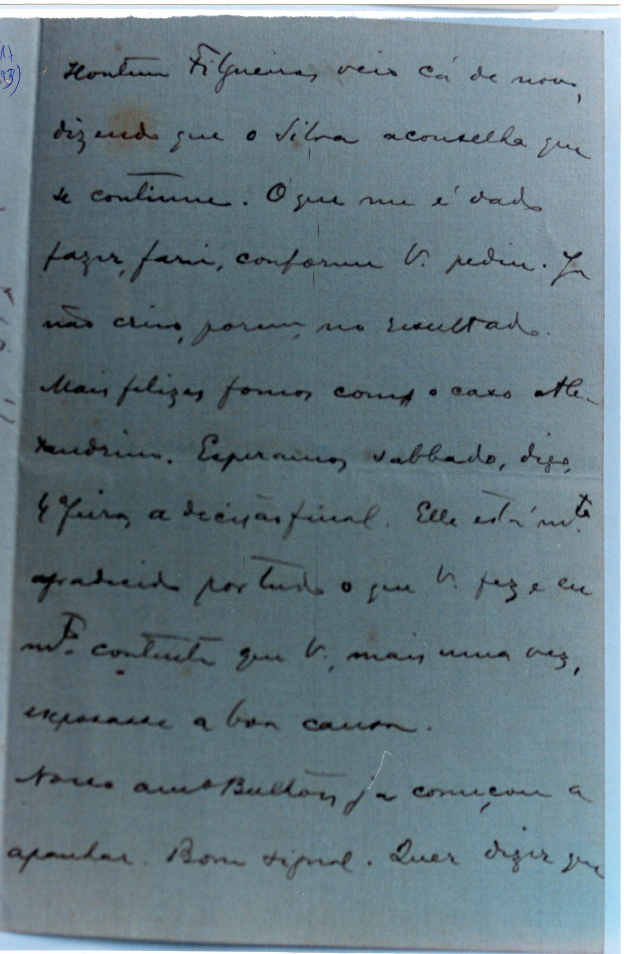 Hontem Filgueiras veio cá de novo,
dizendo que o Silva aconselha que
se continue. O que me é dado
fazer, farei, conforme V. pediu. Ja
não creio, porem, no resultado.
Mais felizes fomos com o caso Ale-
xandrino. Esperamos sabbado, digo,
4ª feira, a decisão final. Elle está mto
agradecido por tudo o que V. fez e eu
mto contente que V., mais uma vez,
esposasse a boa causa.
Nosso amo Bulhões ja começou a
apanhar. Bom signal. Quer dizer que